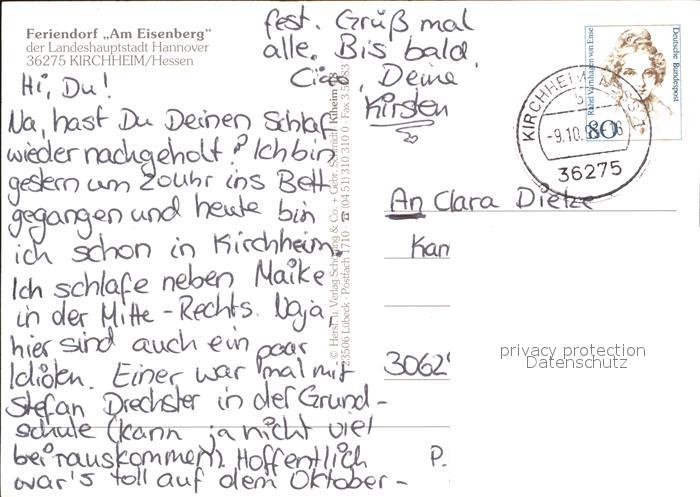 Feriendorf „Am Eisenberg"
der Landeshauptstadt Hannover
36275 KIRCHHEIM/Hessen
Hi, Du!
Na, hast Du Deinen Schlaf
wieder nachgeholt? Ich bin
gestern um 20uhr ins Bett
gegangen und heute bin
ich schon in Kirchheim.
Ich schlafe neben Maike
in der Mitte - Rechts. Naja
hier sind auch ein paar
Idioten. Einer war mal mit
Stefan Drechsler in der Grund-
schule (kann ja nicht viel
bei rauskommen). Hoffentlich
war's toll auf dem Oktober-
fest. Grüß mal
alle. Bis bald
Ciao, Deine
Kirsten
© Herst. u. Verlag Schöning & Co. + Gebr. Schmidt
23506 Lübeck · Postfach 1710 · ☎ (04 51) 310 310 0 · Fax 3
Deutsche Bundespost
Rahel Varnhagen von Ense
80
KIRCHHEIM
-9.10.
36275
An Clara Dietze
Kan
3062
P.
privacy protection
Datenschutz